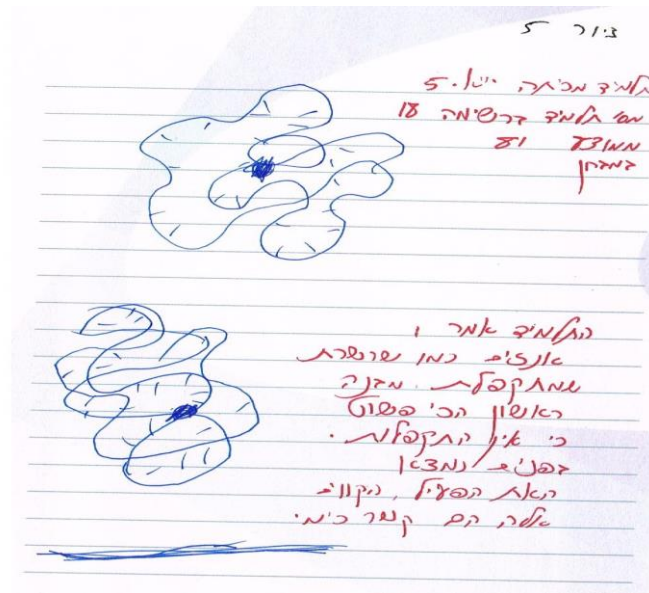 ציור 5
תלמיד מכיתה י"א.5
מס' תלמיד ברשימה 18
ממוצע 78
במבחן
התלמיד אמר,
אנזים כמו שרשרת
שמתקפלת. מבנה
ראשון הכי פשוט
כי אין התקפלות.
בפנים נמצא
האתר הפעיל, הקווים
אלה, הם קשר כימ.